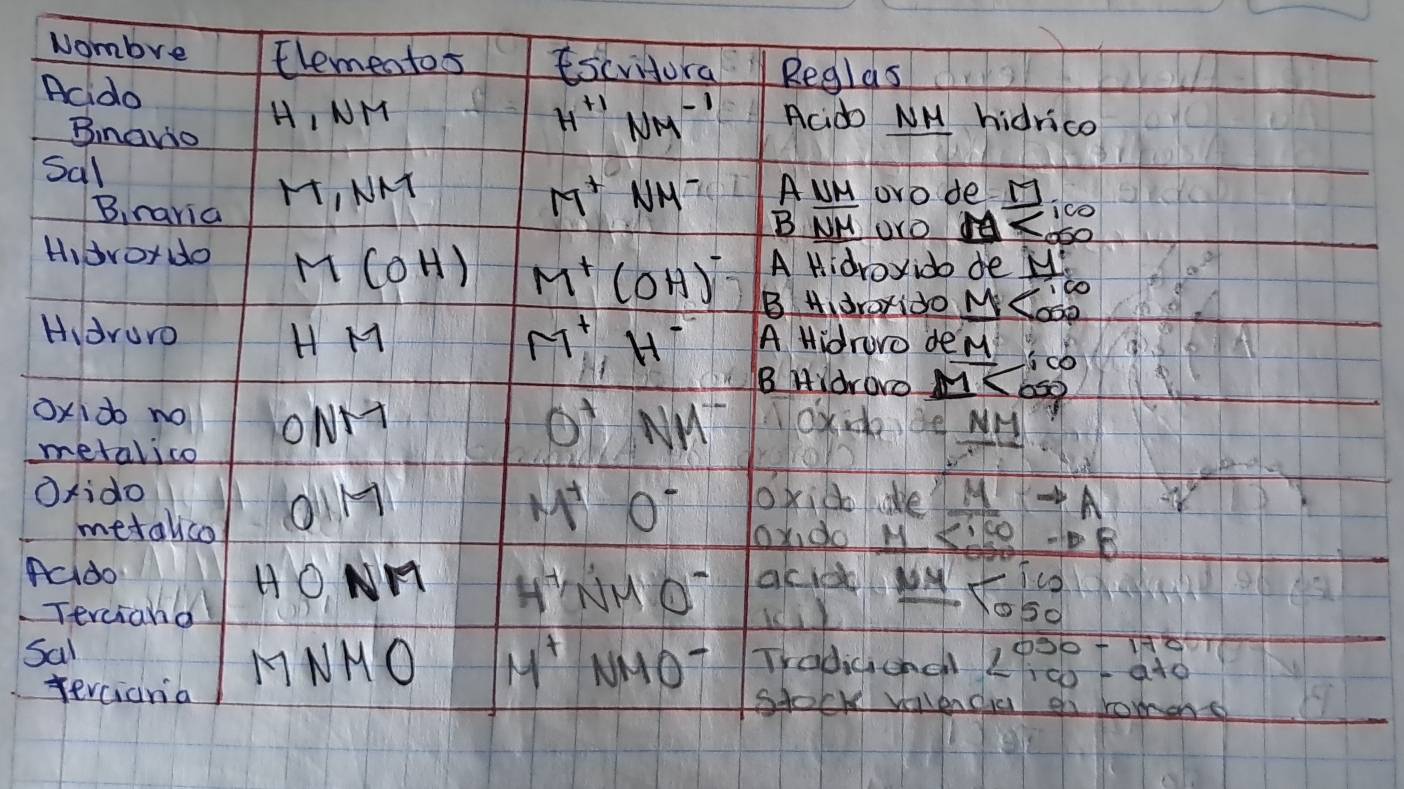 Nombre Elementos Escritura Reglas
Acido
Binario H, NM H⁺¹ NM⁻¹ Acido NM hidrico
Sal
Binaria M, NM M⁺ NM⁻ A NM uro de M
B NM uro M < ico
oso
Hidroxido M (OH) M⁺ (OH)⁻ A Hidroxido de M
B Hidroxido M < ico
oso
Hidruro H M M⁺ H⁻ A Hidruro de M
B Hidruro M < ico
oso
Oxido no
metalico O NM O⁺ NM⁻ Óxido de NM
Oxido
metalico O M M⁺ O⁻ óxido de M → A
oxido M < ico → B
oso
Acido
Terciario H O NM H⁺ NM O⁻ acido NM < ico
oso
Sal
terciaria M NM O M⁺ NMO⁻ Tradicional < oso - ito
ico - ato
Stock valencia en romano